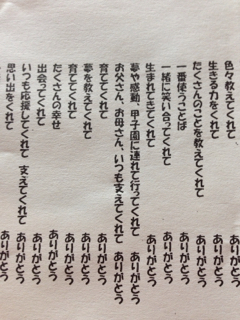 色々教えてくれて ありがとう
生きる力をくれて ありがとう
たくさんのことを教えてくれて ありがとう
一番使うことば ありがとう
一緒に笑い合ってくれて ありがとう
生まれてきてくれて ありがとう
夢や感動、甲子園に連れて行ってくれて ありがとう
お父さん、お母さん、いつも支えてくれて ありがとう
育ててくれて ありがとう
夢を教えてくれて ありがとう
たくさんの幸せ ありがとう
出会ってくれて ありがとう
いつも応援してくれて 支えてくれて ありがとう
思い出をくれて ありがとう